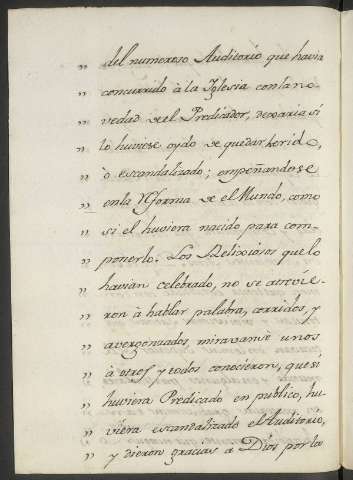 „ del numeroso Auditorio que havia
„ concurrido à la Iglesia con la no-
„ vedad de el Predicador, dexaria si
„ lo huviese oydo de quedar herido,
„ ò escandalizado; empeñandose
„ en la Reforma de el Mundo, como
„ si el huviera nacido para com-
„ ponerlo. Los Religiosos que lo
„ havian celebrado, no se atrevie-
„ ron à hablar palabra, corridos, y
„ avergonzados, miravanse unos
„ à otros, y todos conocieron, que si
„ huviera Predicado en publico, hu-
„ viera escandalizado el Auditorio,
„ y dieron gracias a Dios por la